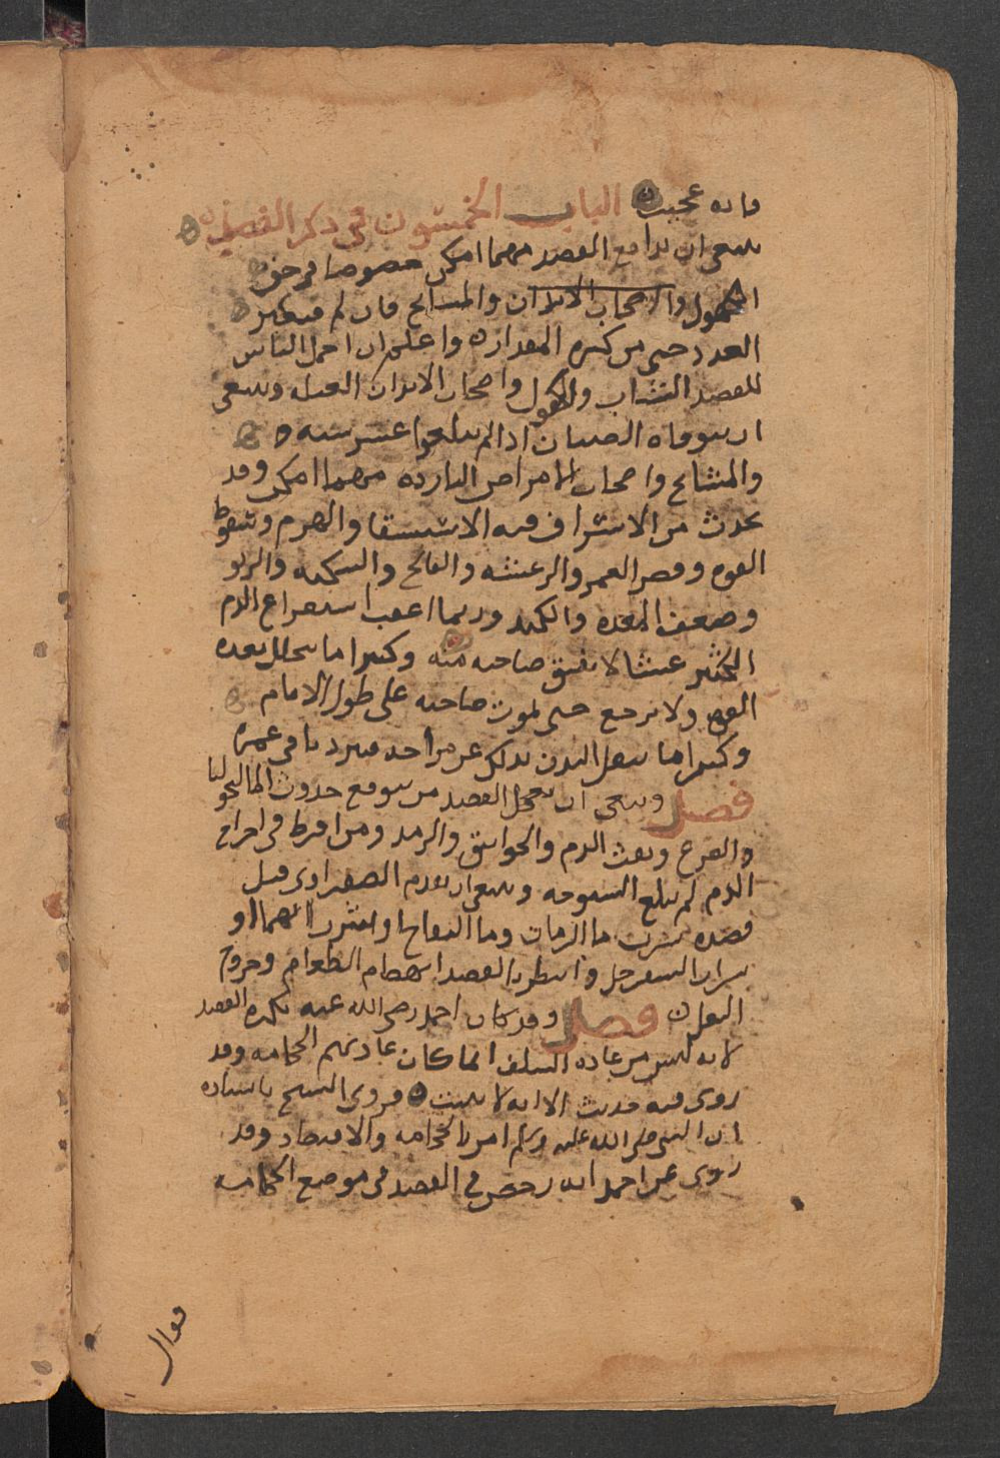 فانه عجيب الباب الخمسون في ذكر الفصد
ينبغي ان يدافع الفصد مهما امكن خصوصا في حق
الكهول واصحاب الابدان والمشايخ فان لم
العدد حتى من كثره المقدار واعلم ان احمل الناس
للفصد الشباب والكهول واصحاب الابدان العبله وينبغي
ان يتوقاه الصبيان اذا لم يبلغوا عشر سنه
والمشايخ واصحاب الامراض البارده مهما امكن وقد
يحدث من الاسراف فيه الاستسقا والهرم وسقوط
القوه وقصر العمر والرعشه والفالج والسكته والربو
وضعف المعده والكبد وربما اعقب استفراغ الدم
الكثير عشا لا يفيق صاحبه منه وكثيرا ما يتحلل بعده
القوه ولا يرجع حتى يموت صاحبه على طول الايام
وكثيرا ما ينتقل البدن بذلك عن مزاجه فيبرد باقي عمره
فصل وينبغي ان يعجل الفصد من يتوقع حدوث الماليخوليا
والصرع ونفث الدم والخوانيق والرمد ومن افرط في اخراج
الدم لم يبلغ الشيخوخه وينبغي ان يقدم الصفراوي قبل
فصده شربت ما الرمان وما التفاح او شراب ايهما او
شراب السفرجل وانتظر بالفصد انهضام الطعام وخروج
الثفل فصل وقد كان احمد رضي الله عنه يكره الفصد
لانه ليس من عاده السلف انما كان عادتهم الحجامه وقد
روي فيه حديث الا انه لا يثبت فروى الشيخ باسناده
ان النبي صلى الله عليه وسلم امر بالحجامه والافتصاد وقد
روي عن احمد انه رخص في الفصد في موضع الحجامه
فوال